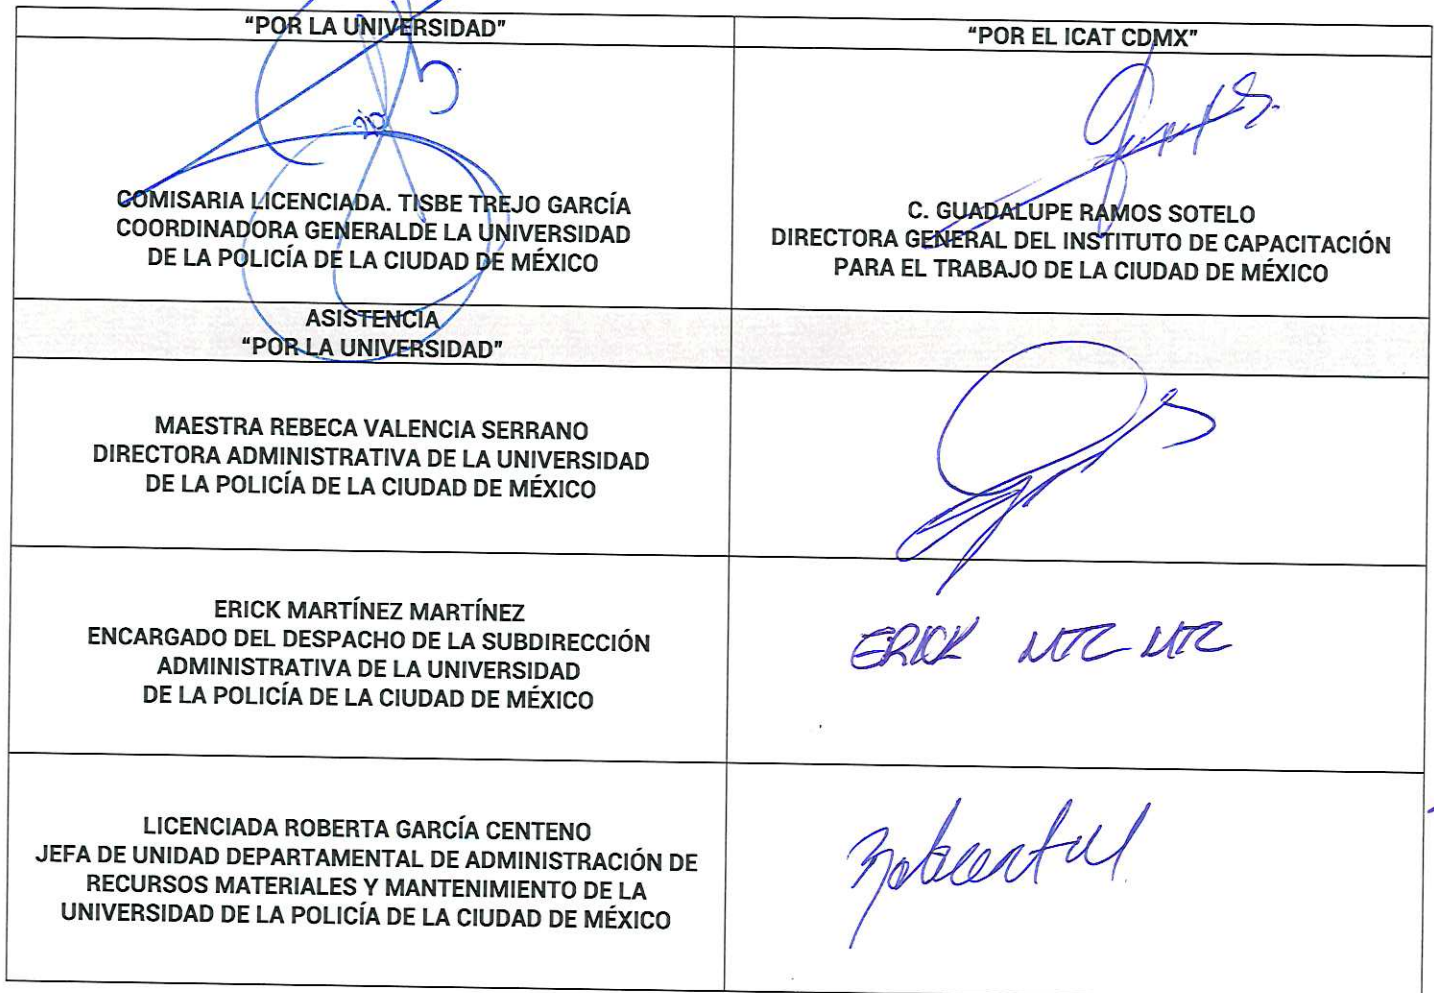 “POR LA UNIVERSIDAD”
“POR EL ICAT CDMX”
COMISARIA LICENCIADA. TISBE TREJO GARCÍA
COORDINADORA GENERALDE LA UNIVERSIDAD
DE LA POLICÍA DE LA CIUDAD DE MÉXICO
C. GUADALUPE RAMOS SOTELO
DIRECTORA GENERAL DEL INSTITUTO DE CAPACITACIÓN
PARA EL TRABAJO DE LA CIUDAD DE MÉXICO
ASISTENCIA
“POR LA UNIVERSIDAD”
MAESTRA REBECA VALENCIA SERRANO
DIRECTORA ADMINISTRATIVA DE LA UNIVERSIDAD
DE LA POLICÍA DE LA CIUDAD DE MÉXICO
ERICK MARTÍNEZ MARTÍNEZ
ENCARGADO DEL DESPACHO DE LA SUBDIRECCIÓN
ADMINISTRATIVA DE LA UNIVERSIDAD
DE LA POLICÍA DE LA CIUDAD DE MÉXICO
ERICK MTZ MTZ
LICENCIADA ROBERTA GARCÍA CENTENO
JEFA DE UNIDAD DEPARTAMENTAL DE ADMINISTRACIÓN DE
RECURSOS MATERIALES Y MANTENIMIENTO DE LA
UNIVERSIDAD DE LA POLICÍA DE LA CIUDAD DE MÉXICO